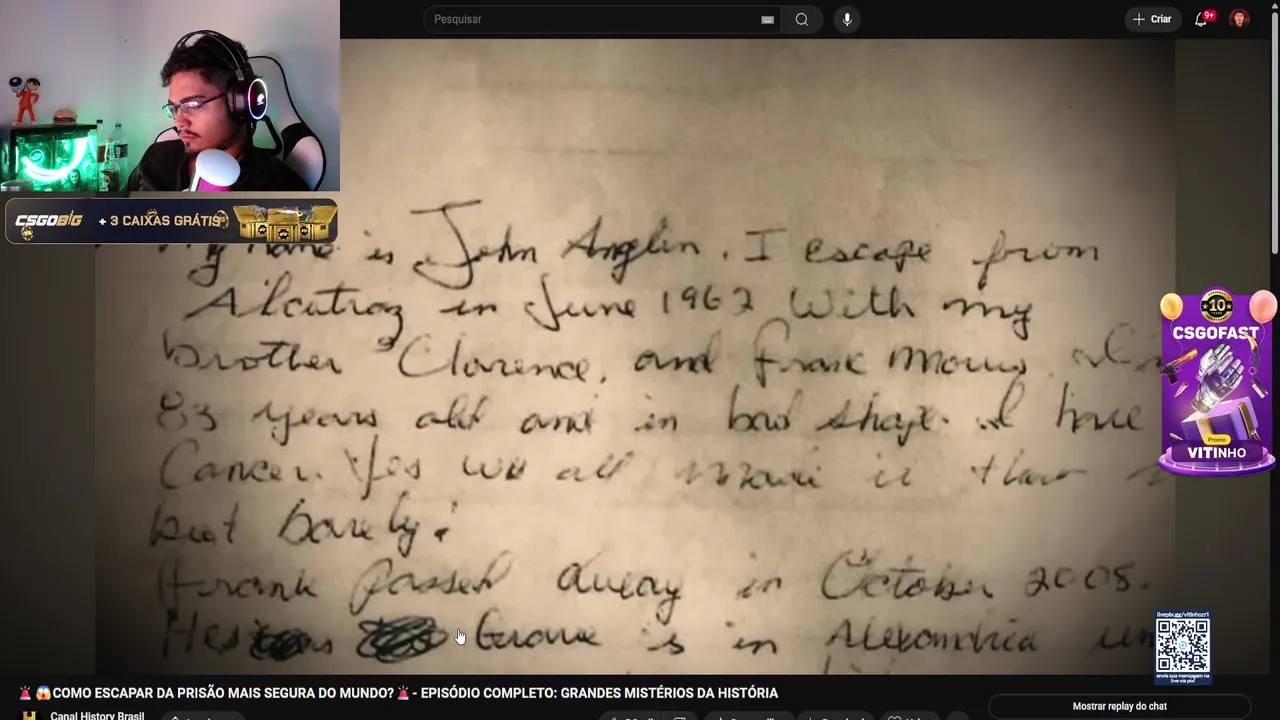 Pesquisar
Criar
9+
CSGOBIG + 3 CAIXAS GRÁTIS
My name is John Anglin. I escape from
Alcatraz in June 1962 With my
brother Clarence, and Frank Morris. I'm
83 years old and in bad shape. I have
Cancer. Yes we all made it that
but barely!
Frank passed away in October 2005.
Hes Grave is in Alexandria un
10
CSGOFAST
Promo
VITINHO
livepix.gg/vitinhozr1
envie sua mensagem na
live via pix!
🚨😱COMO ESCAPAR DA PRISÃO MAIS SEGURA DO MUNDO?🚨 - EPISÓDIO COMPLETO: GRANDES MISTÉRIOS DA HISTÓRIA
Canal History Brasil
Mostrar replay do chat